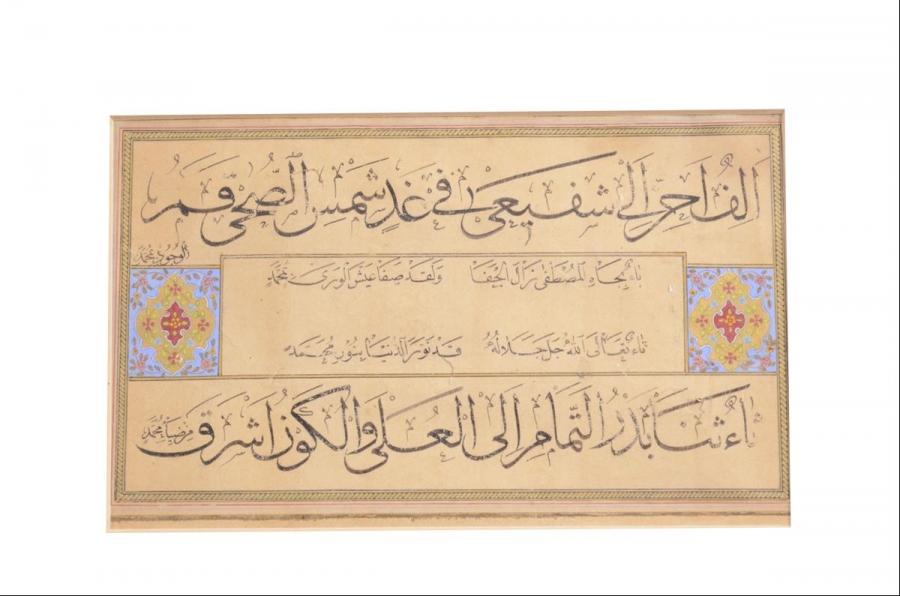 اَلِفٌ احِنُّ اِلى شَفيعى فى غَدٍ شَمْسِ الضُّحى قَمَرُ
الوجود محمد
باء بجاه المصطفى نزل الجفا ولقد صفا عيش الورى بمحمد
تاء تعالى الله جل جلاله قد نور الدنيا بنور محمد
ثاء ثنا بدر التمام الى العلى والكون اشرق من ضياء محمد